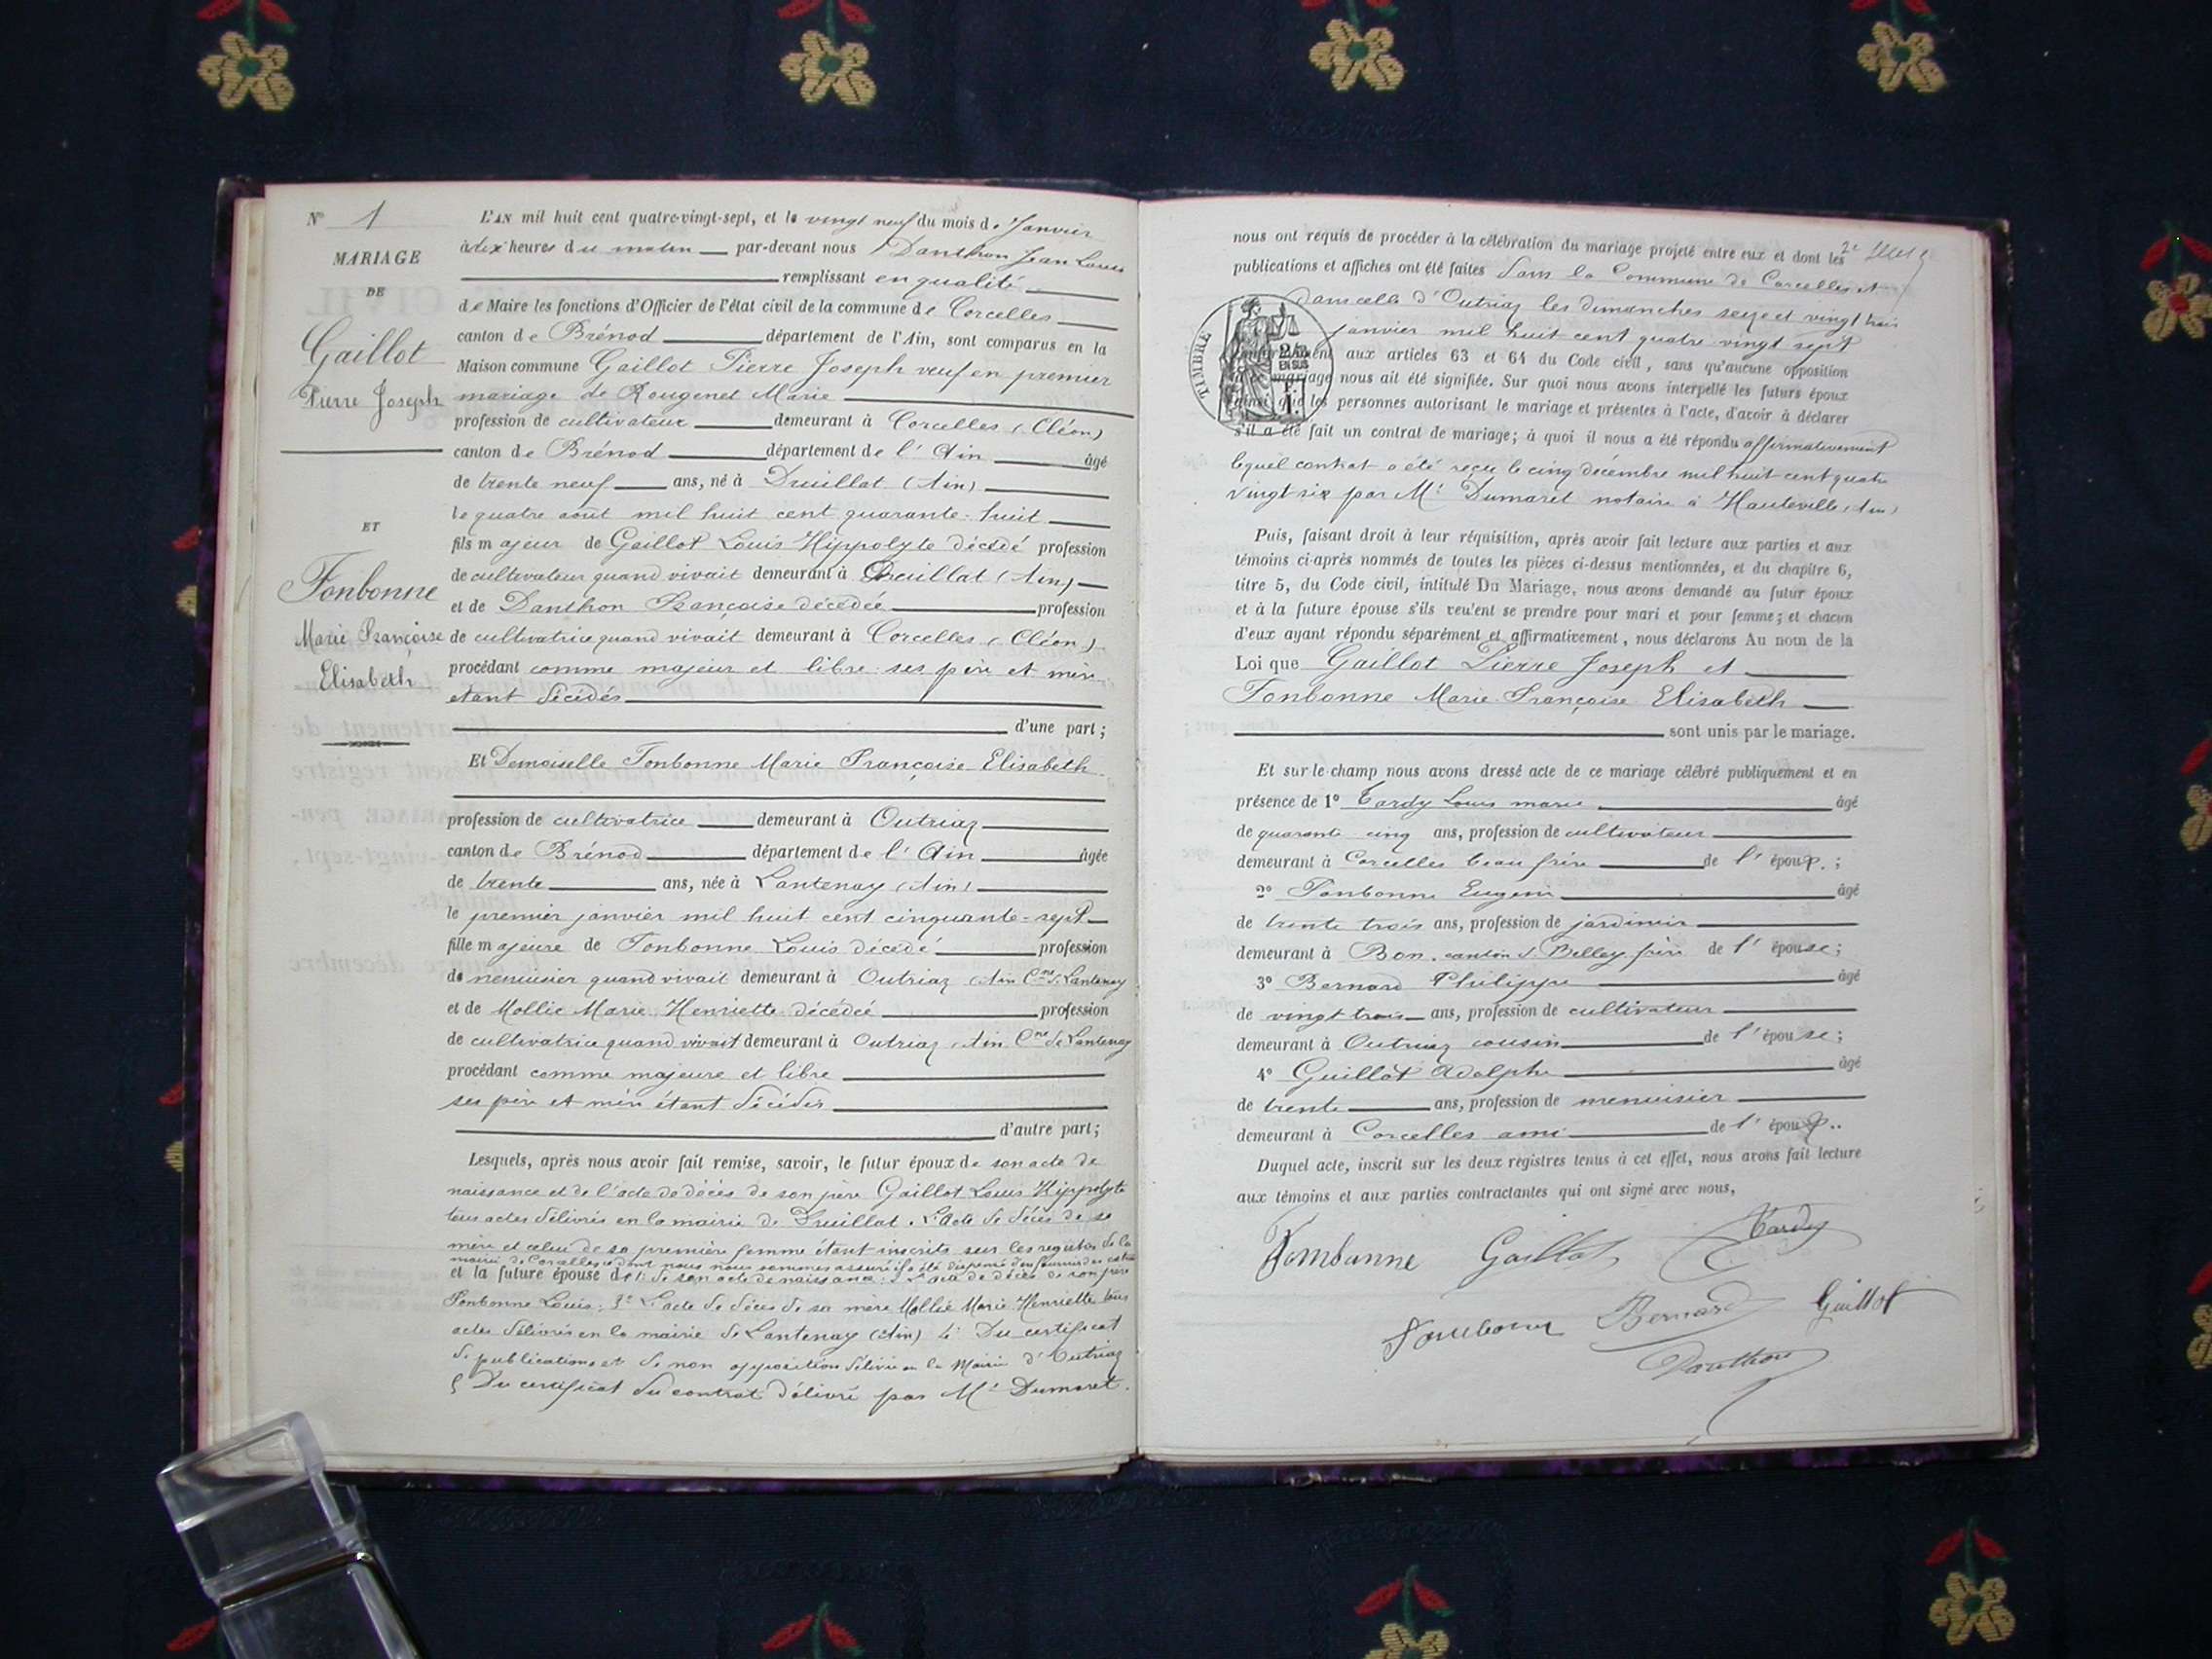 N° 1
MARIAGE
DE
Gaillot
Pierre Joseph
ET
Fonbonne
Marie Françoise
Elisabeth
L'AN mil huit cent quatre-vingt-sept, et le vingt neuf du mois de Janvier
à dix heures du matin par-devant nous Danthon Jean Louis
remplissant en qualité
de Maire les fonctions d'Officier de l'état civil de la commune de Corcelles
canton de Brénod département de l'Ain, sont comparus en la
Maison commune Gaillot Pierre Joseph veuf en premier
mariage de Rougenet Marie
profession de cultivateur demeurant à Corcelles (Cléon)
canton de Brénod département de l'Ain âgé
de trente neuf ans, né à Druillat (Ain)
le quatre août mil huit cent quarante-huit
fils majeur de Gaillot Louis Hippolyte décédé profession
de cultivateur quand vivait demeurant à Druillat (Ain)
et de Danthon Françoise décédée profession
de cultivatrice quand vivait demeurant à Corcelles (Cléon)
procédant comme majeur et libre ses père et mère
étant décédés
d'une part ;
Et Demoiselle Fonbonne Marie Françoise Elisabeth
profession de cultivatrice demeurant à Outriaz
canton de Brénod département de l'Ain âgée
de trente ans, née à Lantenay (Ain)
le premier janvier mil huit cent cinquante-sept
fille majeure de Fonbonne Louis décédé profession
de menuisier quand vivait demeurant à Outriaz (Ain Cne de Lantenay
et de Mollie Marie Henriette décédée profession
de cultivatrice quand vivait demeurant à Outriaz Ain Cne de Lantenay
procédant comme majeure et libre
ses père et mère étant décédés
d'autre part ;
Lesquels, après nous avoir fait remise, savoir, le futur époux de son acte de
naissance et de l'acte de décès de son père Gaillot Louis Hippolyte
tous actes délivrés en la mairie de Druillat. L'acte de décès de sa
mère et celui de sa première femme étant inscrits sur les registres de la
mairie de Corcelles dont nous nous sommes assuré il a été dispensé d'en fournir des
et la future épouse de 1° de son acte de naissance : 2° L'acte de décès de son père
Fonbonne Louis : 3° L'acte de décès de sa mère Mollie Marie Henriette tous
actes délivrés en la mairie de Lantenay (Ain) 4° Du certificat
de publications et de non opposition délivré en la Mairie d'Outriaz
5 Du certificat du contrat délivré par Me Dumaret.
nous ont requis de procéder à la célébration du mariage projeté entre eux et dont les
publications et affiches ont été faites dans la Commune de Corcelles et
dans celle d'Outriaz les dimanches seize et vingt trois
janvier mil huit cent quatre vingt sept
TIMBRE
EN SUS
conformément aux articles 63 et 64 du Code civil, sans qu'aucune opposition
mariage nous ait été signifiée. Sur quoi nous avons interpellé les futurs époux
ainsi que les personnes autorisant le mariage et présentes à l'acte, d'avoir à déclarer
s'il a été fait un contrat de mariage ; à quoi il nous a été répondu affirmativement
lequel contrat a été reçu le cinq décembre mil huit cent quatre
vingt-six par Me Dumaret notaire à Hauteville (Ain)
Puis, faisant droit à leur réquisition, après avoir fait lecture aux parties et aux
témoins ci-après nommés de toutes les pièces ci-dessus mentionnées, et du chapitre 6,
titre 5, du Code civil, intitulé Du Mariage, nous avons demandé au futur époux
et à la future épouse s'ils veulent se prendre pour mari et pour femme ; et chacun
d'eux ayant répondu séparément et affirmativement, nous déclarons Au nom de la
Loi que Gaillot Pierre Joseph et
Fonbonne Marie Françoise Elisabeth
sont unis par le mariage.
Et sur-le-champ nous avons dressé acte de ce mariage célébré publiquement et en
présence de 1° Tardy Louis marie âgé
de quarante cinq ans, profession de cultivateur
demeurant à Corcelles beau frère de l'époux. ;
2° Fonbonne Eugène âgé
de trente trois ans, profession de jardinier
demeurant à Bon. canton d. Belley frère de l'épouse ;
3° Bernard Philippe âgé
de vingt trois ans, profession de cultivateur
demeurant à Outriaz cousin de l'épouse ;
4° Guillot Adolphe âgé
de trente ans, profession de menuisier
demeurant à Corcelles ami de l'époux..
Duquel acte, inscrit sur les deux registres tenus à cet effet, nous avons fait lecture
aux témoins et aux parties contractantes qui ont signé avec nous,
Fombonne Gaillot Tardy
Fombonne Bernard Guillot
Danthon